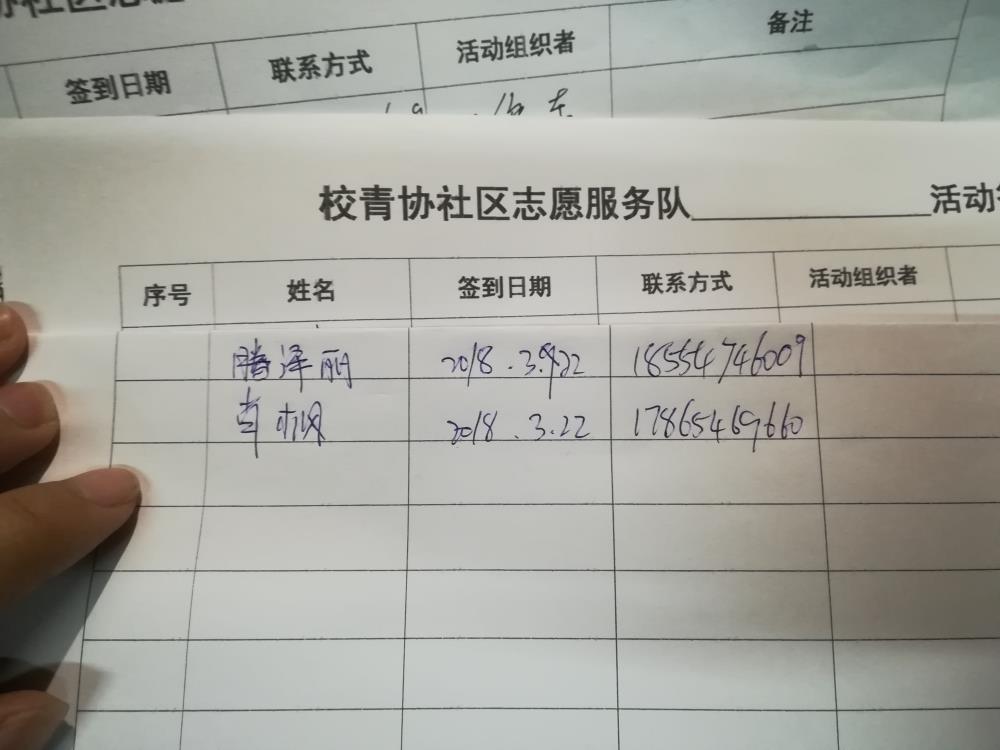 签到日期 联系方式 活动组织者 备注
校青协社区志愿服务队 活动
序号 姓名 签到日期 联系方式 活动组织者
腾泽丽 2018.3.22 18554746009
2018.3.22 17865469660